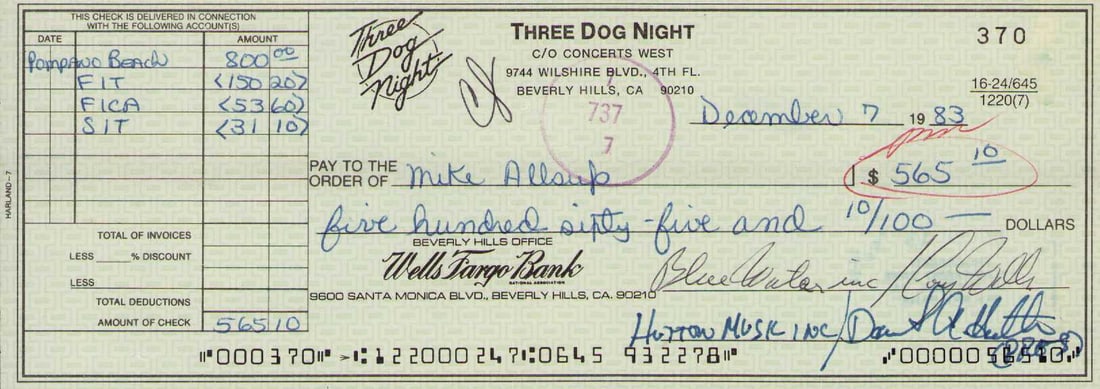 THIS CHECK IS DELIVERED IN CONNECTION
WITH THE FOLLOWING ACCOUNT(S)
DATE AMOUNT
Pompano Beach 800 00
FIT <150 20>
FICA <53 60>
SIT <31 10>
TOTAL OF INVOICES
LESS % DISCOUNT
LESS
TOTAL DEDUCTIONS
AMOUNT OF CHECK 565 10
HARLAND-7
Three Dog Night
THREE DOG NIGHT
C/O CONCERTS WEST
9744 WILSHIRE BLVD., 4TH FL.
BEVERLY HILLS, CA 90210
370
16-24/645
1220(7)
737
7
December 7 1983
PAY TO THE
ORDER OF Mike Allsup $ 565 10
five hundred sixty-five and 10/100 — DOLLARS
BEVERLY HILLS OFFICE
Wells Fargo Bank
NATIONAL ASSOCIATION
9600 SANTA MONICA BLVD., BEVERLY HILLS, CA. 90210
Blue Water inc/
HUTTON MUSIC INC/
(PRES)
⑈000370⑈ ⑆122000247⑆0645 932278⑈